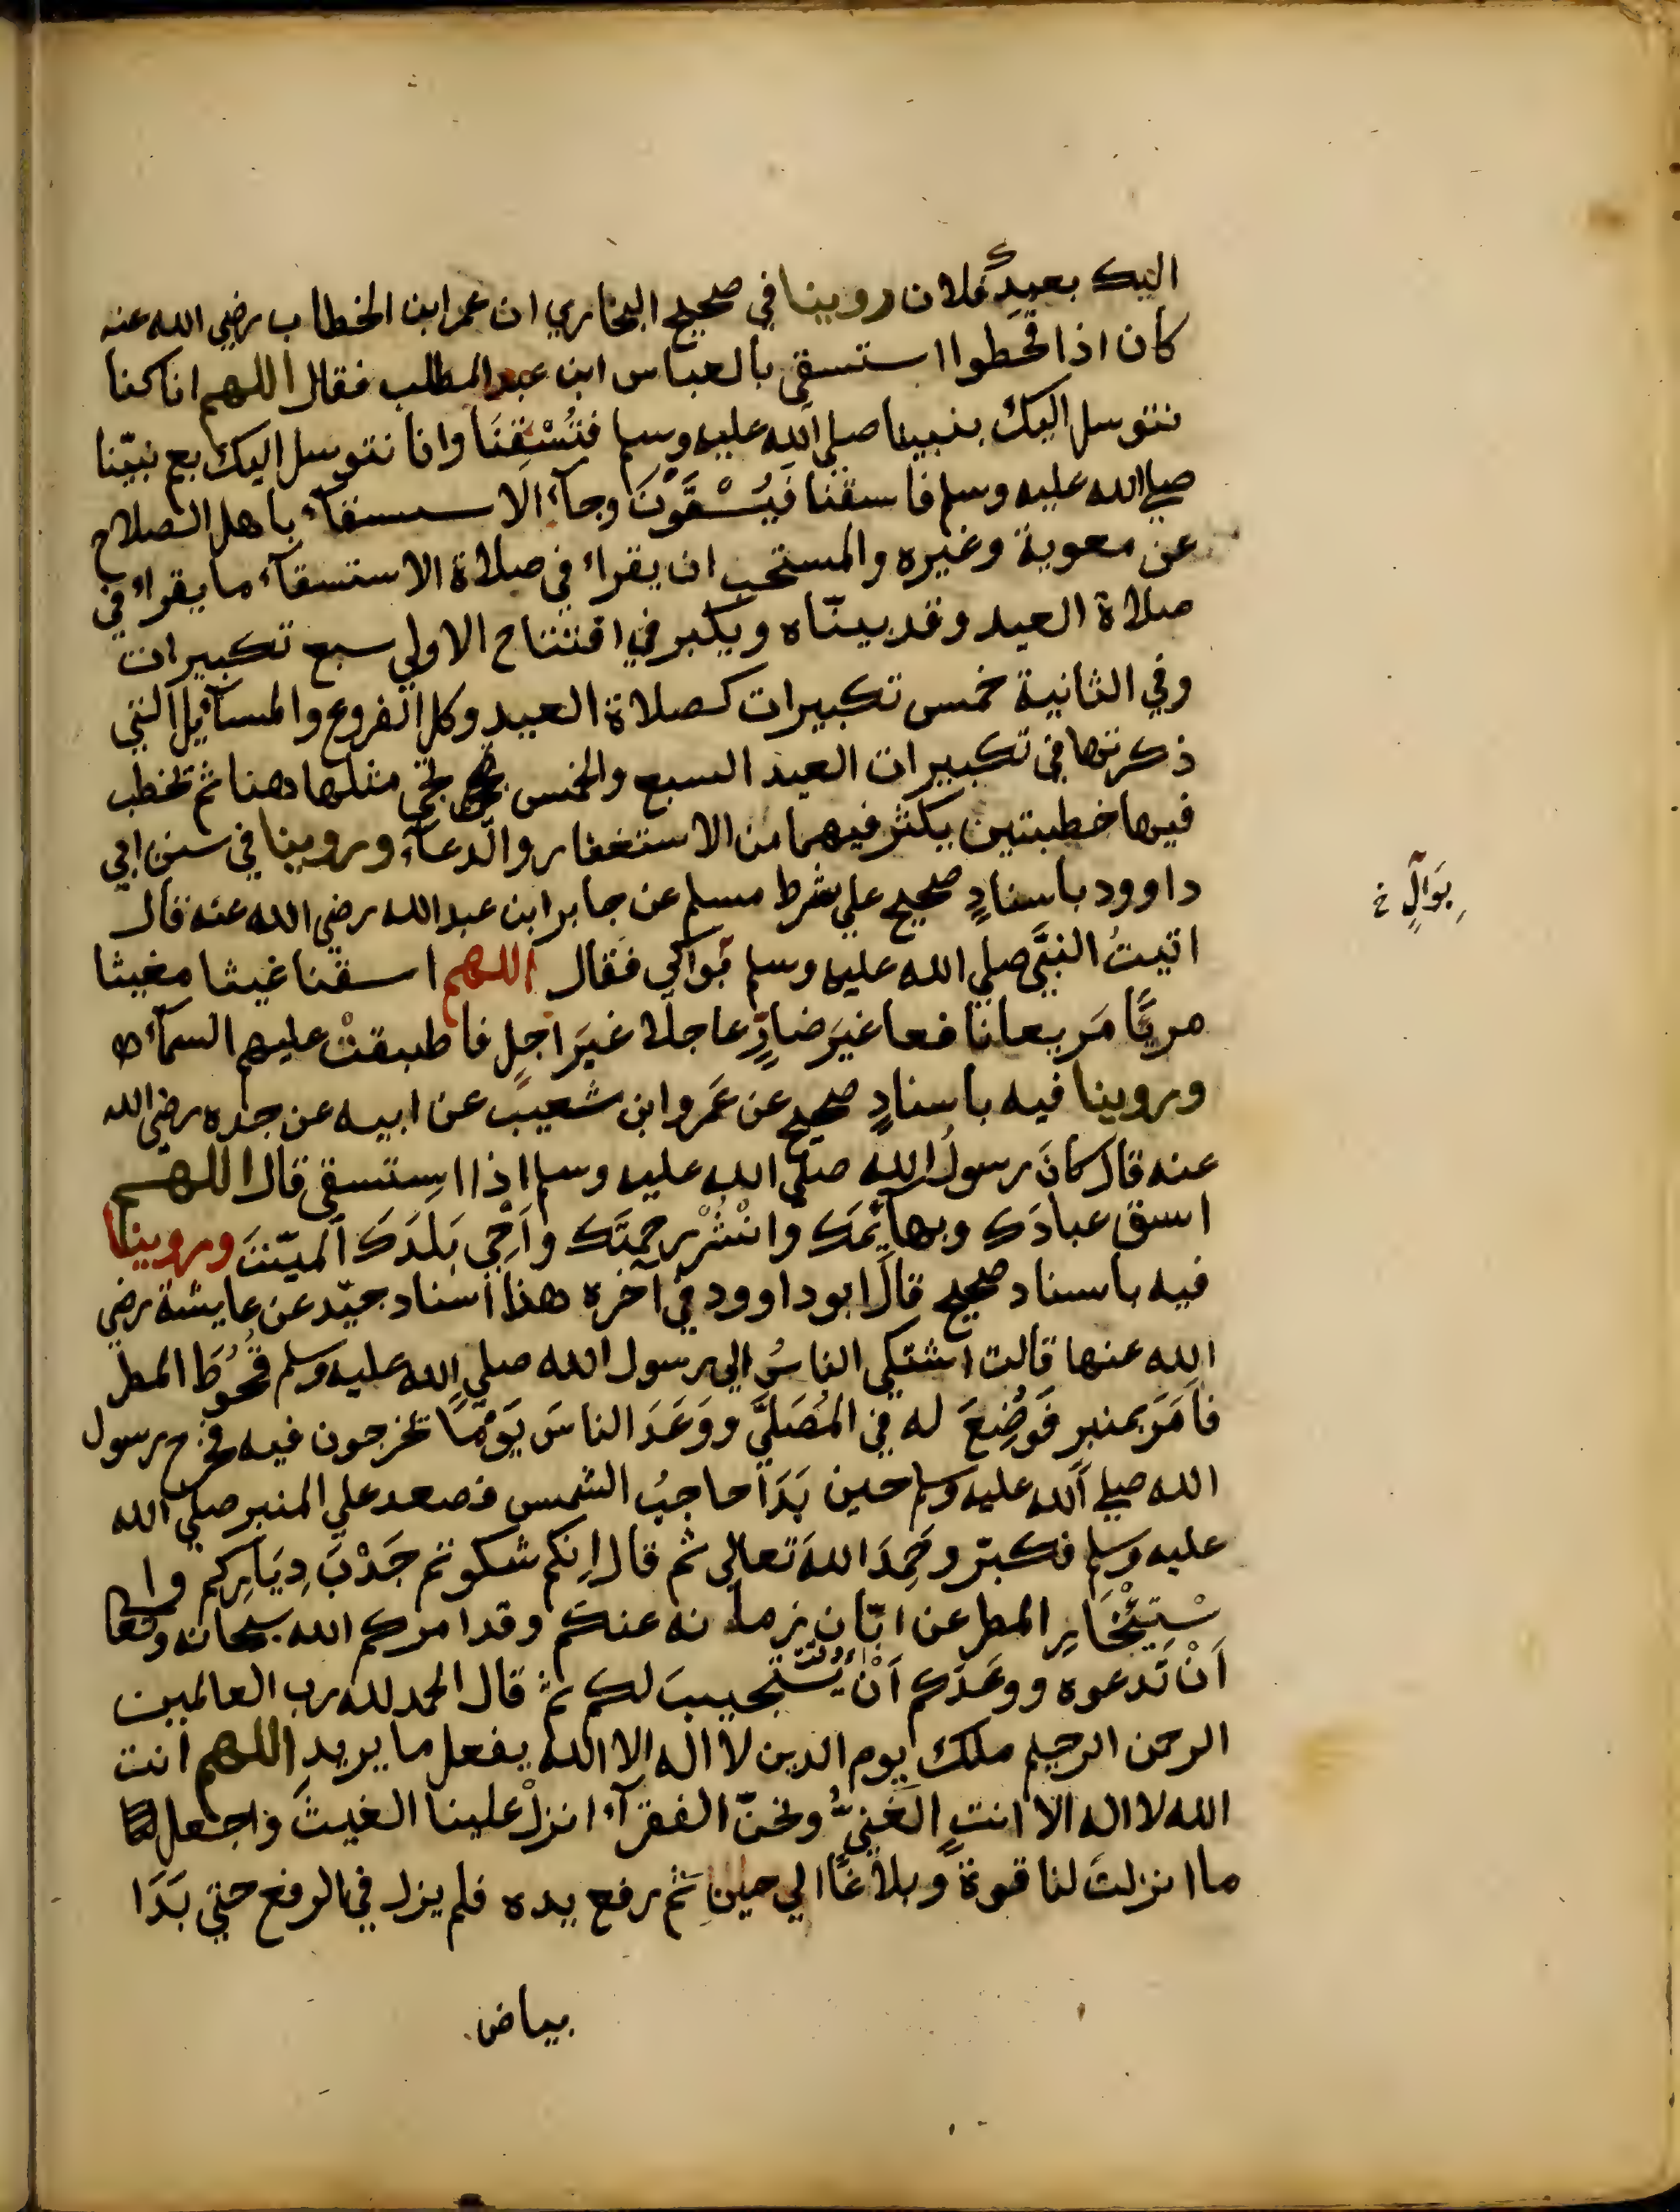 اليك بعبدك فلان روينا في صحيح البخاري ان عمر ابن الخطاب رضي الله عنه
كان اذا قحطوا استسقى بالعباس ابن عبد المطلب فقال اللهم انا كنا
نتوسل اليك بنبينا صلي الله عليه وسلم فتُسْقِنَا وانا نتوسل اليك بعم نبيّنا
صلي الله عليه وسلم فاسقنا فَيُسْقَوْنَ وجآء الاستسقآء باهل الصلاح
عن معوية وغيره والمستحب ان يقراء في صلاة الاستسقآء ما يقراء في
صلاة العيد وقد بينّاه ويكبر في افتتاح الاولي سبع تكبيرات
وفي الثانية خمس تكبيرات كصلاة العيد وكل الفروع والمسآئيل التي
ذكرتها في تكبيرات العيد السبع والخمس يجي مثلها هنا ثم يخطب
فيها خطبتين يكثر فيهما من الاستغفار والدعآء وروينا في سنن ابي
داوود باسنادٍ صحيح علي شرط مسلم عن جابر ابن عبد الله رضي الله عنه قال
اتيتُ النبيَّ صلي الله عليه وسلم بَوآكي فقال اللهم اسقنا غيثا مغيثا
مريًّا مَريعا نافعا غيَر ضارٍّ عاجلا غيَر اجلٍ فاطبقتْ عليهم السمآء
وروينا فيه باسنادٍ صحيح عن عَمرو ابن شعيب عن ابيه عن جده رضي الله
عنه قال كانَ رسولُ الله صلّي الله عليه وسلم اذا استسقي قال اللهم
اسق عبادَك وبهآيمَك وانْشُرْ رحمتَك وأَحْيِ بَلَدَكَ الميّتَ وروينا
فيه باسناد صحيح قال ابو داوود في آخره هذا اسناد جيّد عن عايشة رضي
الله عنها قالت اشتكي الناسُ الي رسول الله صلي الله عليه وسلم قُحُوطَ المطر
فاَمَرَ بمنبرٍ فَوُضِعَ له في المُصَلَّي ووَعَدَ الناسَ يَوْمًا يخرجون فيه فخرج رسول
الله صلي الله عليه وسلم حين بَدَا حاجبُ الشمس فصعد علي المنبر صلي الله
عليه وسلم فكبرّ وحَمِدَ اللهَ تعالي ثم قال اِنكم شكوتم جَدْبَ دِيَارِكم وا
سْتِيْخَارِ المطر عن ابّان زمانه عنكم وقد امركم الله سبحانه وتعا
اَنْ تَدعوه ووعَدَكم اَنْ يستجيبَ لكم ثم قال الحمد لله رب العالمين
الرحمن الرحيم ملك يوم الدين لا اله الا الله يفعل ما يريد اللهم انت
الله لا اله الا انت الغَنِيُّ ونحن الفقرآء انزلْ علينا الغيثَ واجعل
ما انزلتَ لنا قوةً وبلاغًا الي حين ثم رفع يده فلم يزل في الرفع حتي بَدَا
بَوآلٍ خ
بياض